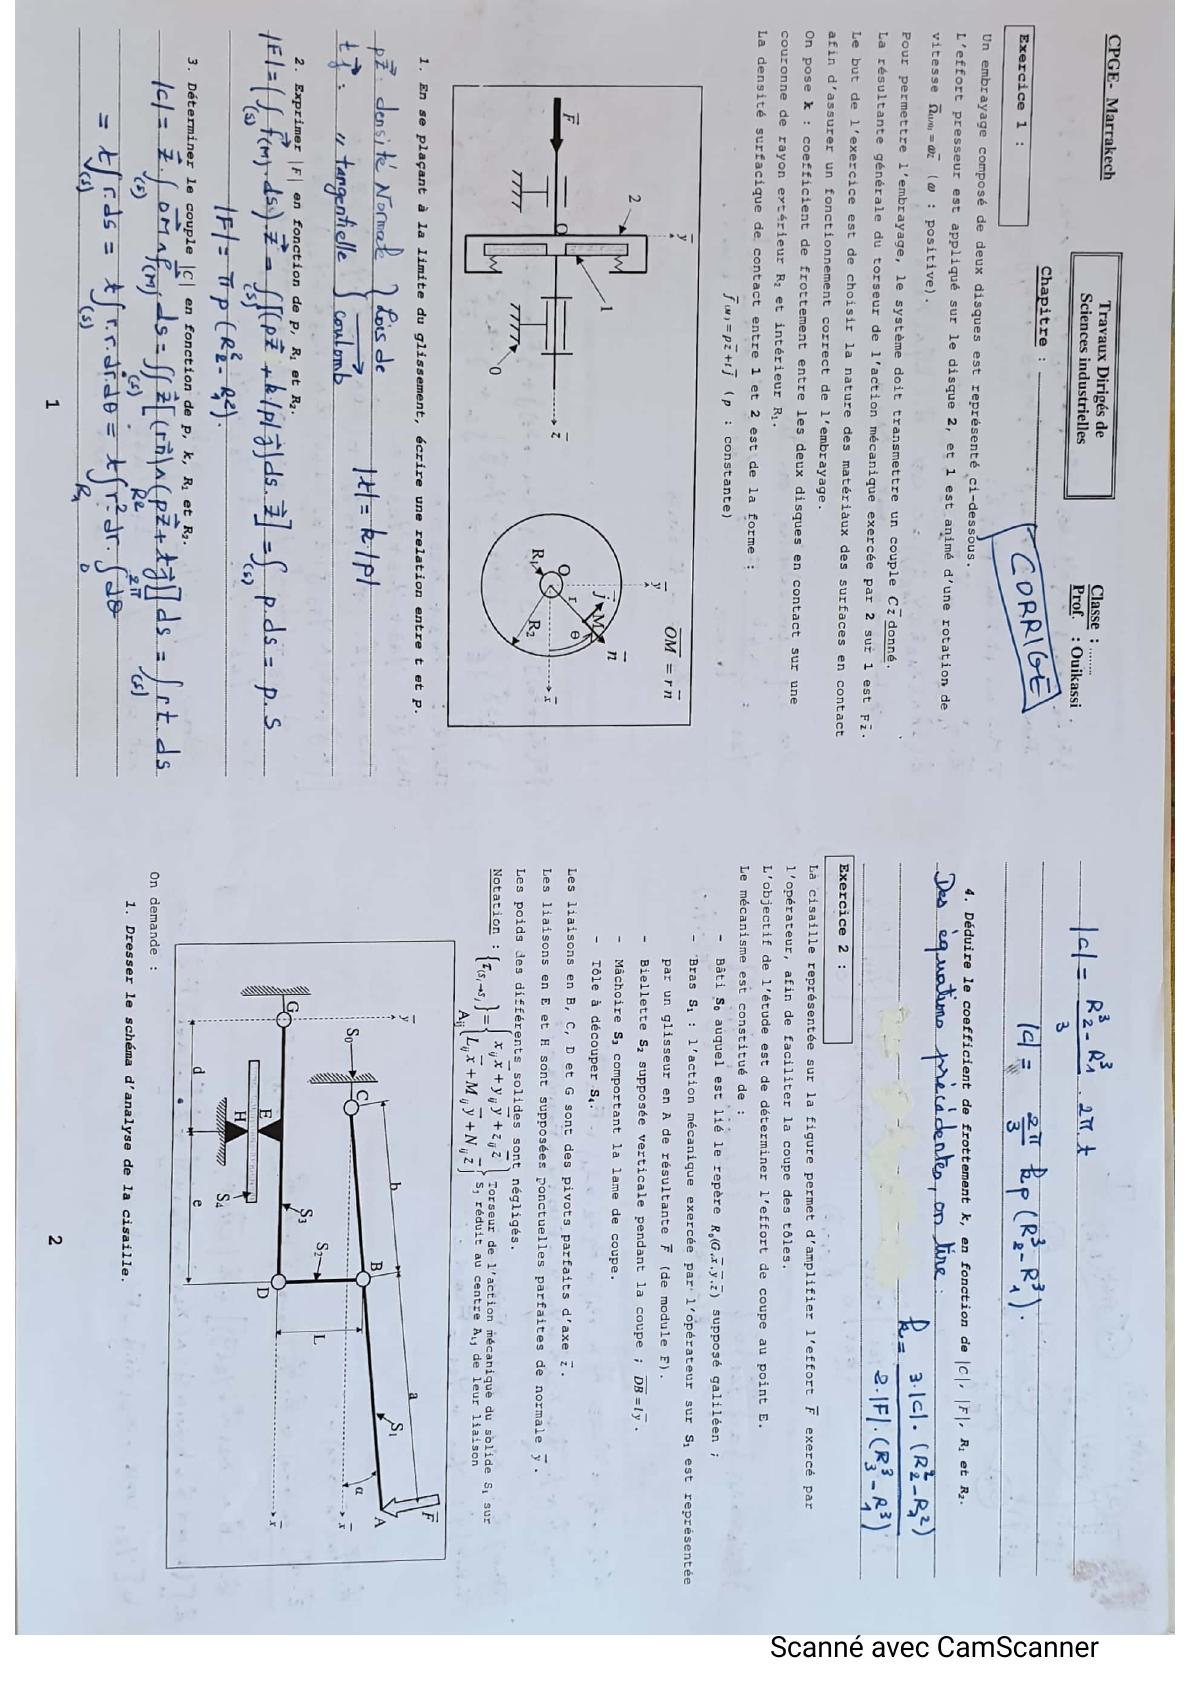 CPGE- Marrakech
Travaux Dirigés de
Sciences industrielles
Classe : ........
Prof. : Ouikassi
Chapitre :
CORRIGÉ
Exercice 1 :
Un embrayage composé de deux disques est représenté ci-dessous.
L'effort presseur est appliqué sur le disque 2, et 1 est animé d'une rotation de
vitesse Ω̄(1/0) = ωz̄ (ω : positive).
Pour permettre l'embrayage, le système doit transmettre un couple C z̄ donné.
La résultante générale du torseur de l'action mécanique exercée par 2 sur 1 est F z̄.
Le but de l'exercice est de choisir la nature des matériaux des surfaces en contact
afin d'assurer un fonctionnement correct de l'embrayage.
On pose k : coefficient de frottement entre les deux disques en contact sur une
couronne de rayon extérieur R₂ et intérieur R₁.
La densité surfacique de contact entre 1 et 2 est de la forme :
f̄(M) = pz̄ + tj̄ ( p : constante)
F̄
2
ȳ
O
1
0
z̄
ȳ
OM = r n̄
j̄
M
n̄
O
r
θ
R₁
R₂
x̄
1. En se plaçant à la limite du glissement, écrire une relation entre t et p.
pz⃗ : densité Normale } Lois de
tj⃗ : " tangentielle } coulomb → |t| = k|p|
2. Exprimer |F| en fonction de p, R₁ et R₂.
|F| = (∫(s) f⃗(M).ds).z⃗ = ∫(s)[(pz⃗ + k|p|j⃗)ds.z⃗] = ∫(s) p.ds = p.S
|F| = π p (R₂² - R₁²).
3. Déterminer le couple |C| en fonction de p, k, R₁ et R₂.
|C| = z⃗.∫(s) OM ∧ f(M).ds = ∫∫(s) z⃗[(rn⃗) ∧ (pz⃗ + tj⃗)]ds = ∫(s) rt.ds
= t∫(s) r.ds = t∫(s) r.r.dr.dθ = t∫R₁R₂ r².dr.∫02π dθ
1
|C| = (R₂³ - R₁³)/3 . 2π.t
|C| = 2π/3 kp(R₂³ - R₁³).
4. Déduire le coefficient de frottement k, en fonction de |C|, |F|, R₁ et R₂.
Des équations précédentes, on tire :
k = 3.|C|.(R₂² - R₁²) / 2.|F|.(R₃³ - R₁³)
Exercice 2 :
La cisaille représentée sur la figure permet d'amplifier l'effort F̄ exercé par
l'opérateur, afin de faciliter la coupe des tôles.
L'objectif de l'étude est de déterminer l'effort de coupe au point E.
Le mécanisme est constitué de :
- Bâti S₀ auquel est lié le repère R₀(G,x̄,ȳ,z̄) supposé galiléen ;
- Bras S₁ : l'action mécanique exercée par l'opérateur sur S₁ est représentée
par un glisseur en A de résultante F̄ (de module F).
- Biellette S₂ supposée verticale pendant la coupe ; DB = lȳ.
- Mâchoire S₃ comportant la lame de coupe.
- Tôle à découper S₄.
Les liaisons en B, C, D et G sont des pivots parfaits d'axe z̄.
Les liaisons en E et H sont supposées ponctuelles parfaites de normale ȳ.
Les poids des différents solides sont négligés.
Notation : {τ(Si→Sj)} = Aij {xij x̄ + yij ȳ + zij z̄ ; Lij x̄ + Mij ȳ + Nij z̄} Torseur de l'action mécanique du solide Si sur
Sj réduit au centre Aij de leur liaison
ȳ
S₀
C
b
B
a
S₁
α
F̄
A
x̄
G
S₃
S₂
L
D
x̄
E
H
S₄
d
e
On demande :
1. Dresser le schéma d'analyse de la cisaille.
2
Scanné avec CamScanner